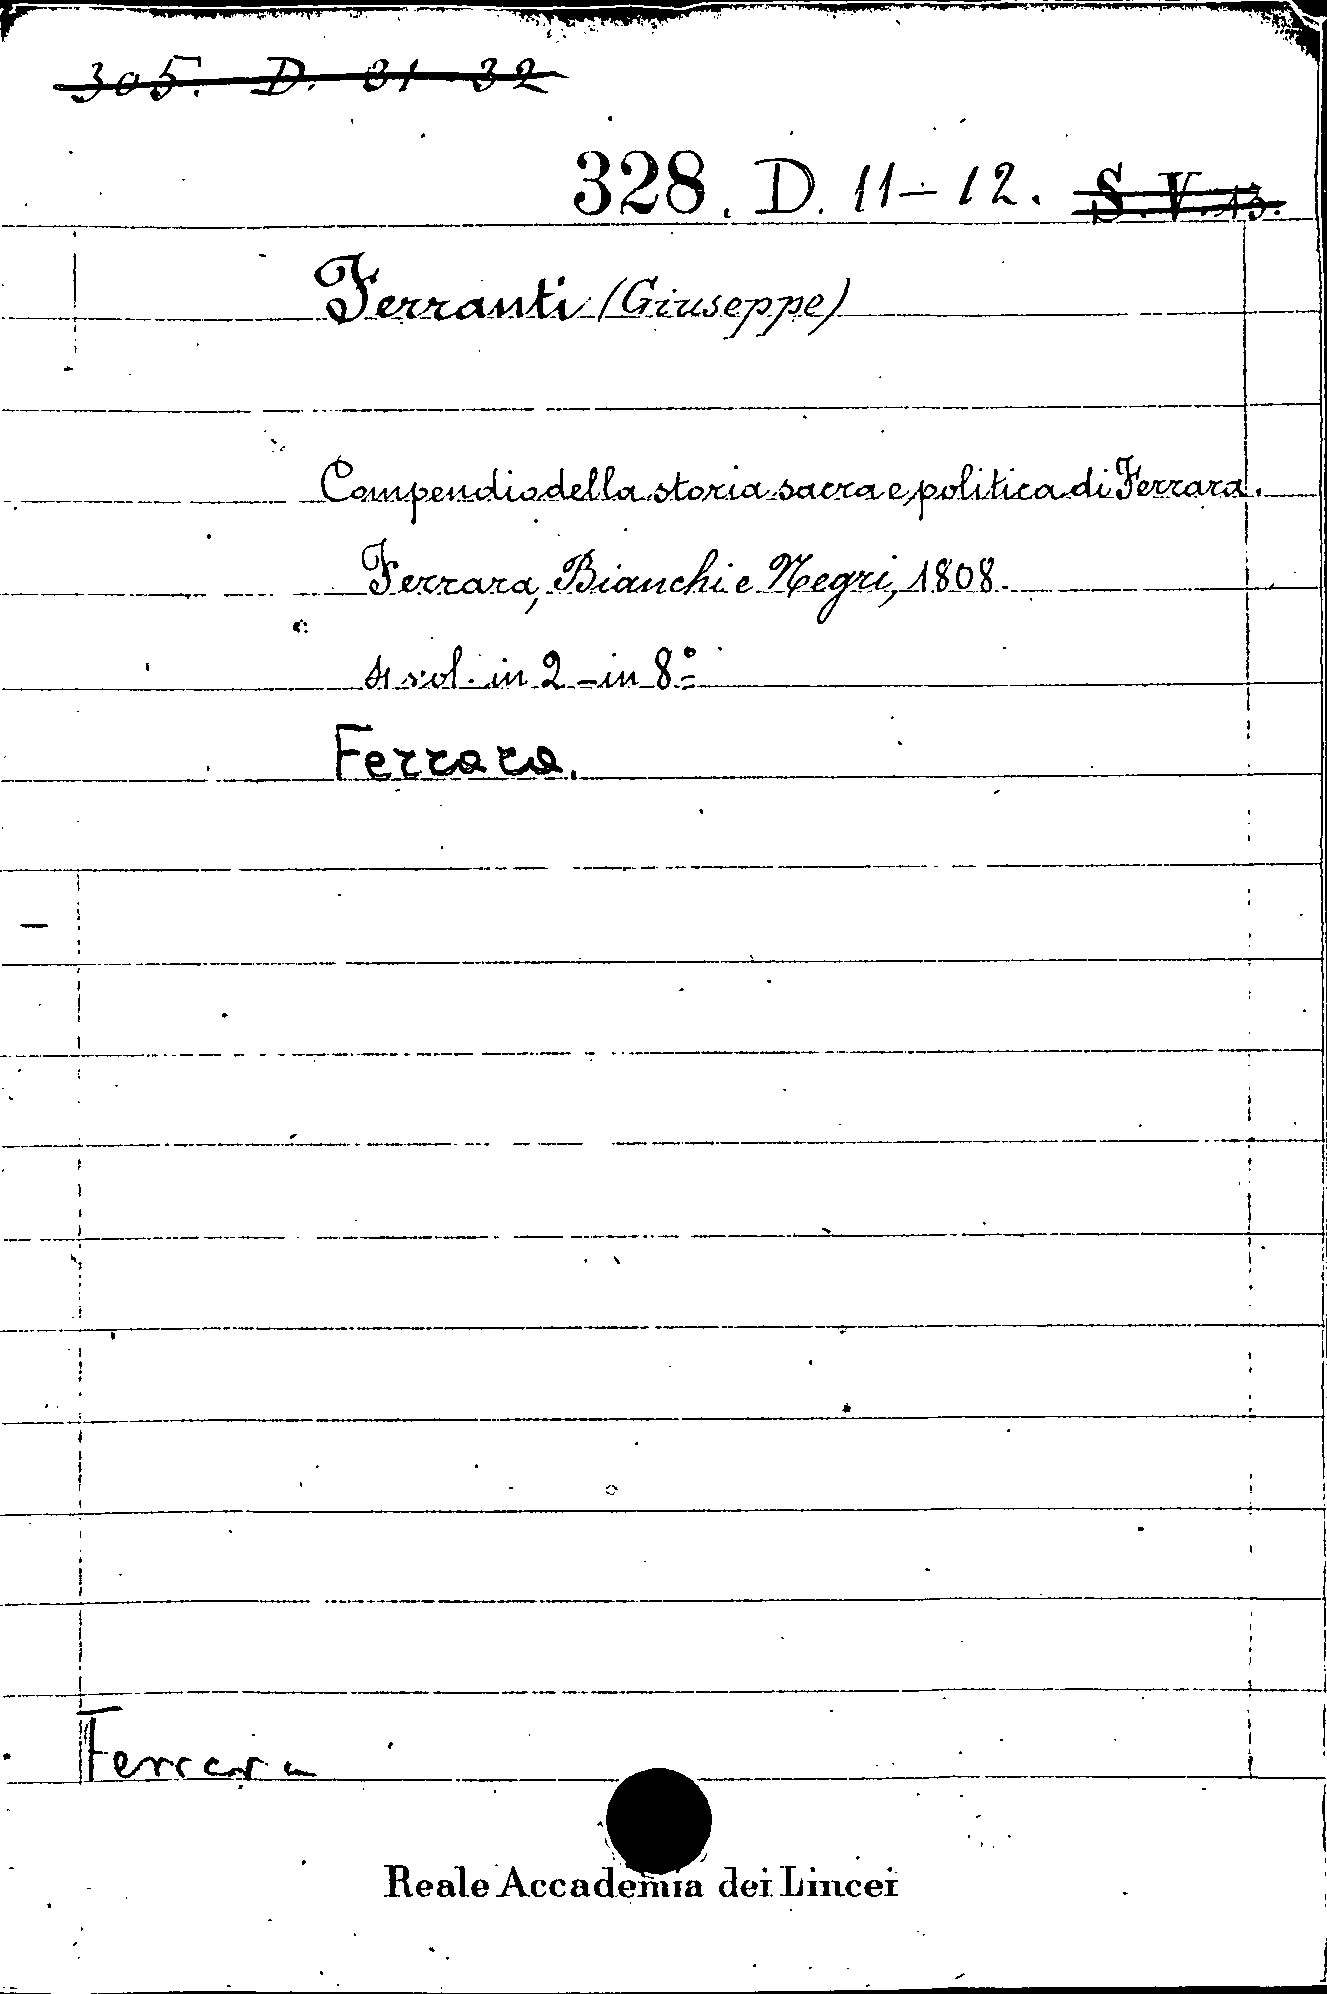 305. D. 31-32
328. D. 11-12. S. V. 13.
Ferranti (Giuseppe)
Compendio della storia sacra e politica di Ferrara.
Ferrara, Bianchi e Negri, 1808.
4 vol. in 2 - in 8°
Ferrara.
Ferrara
Reale Accademia dei Lincei